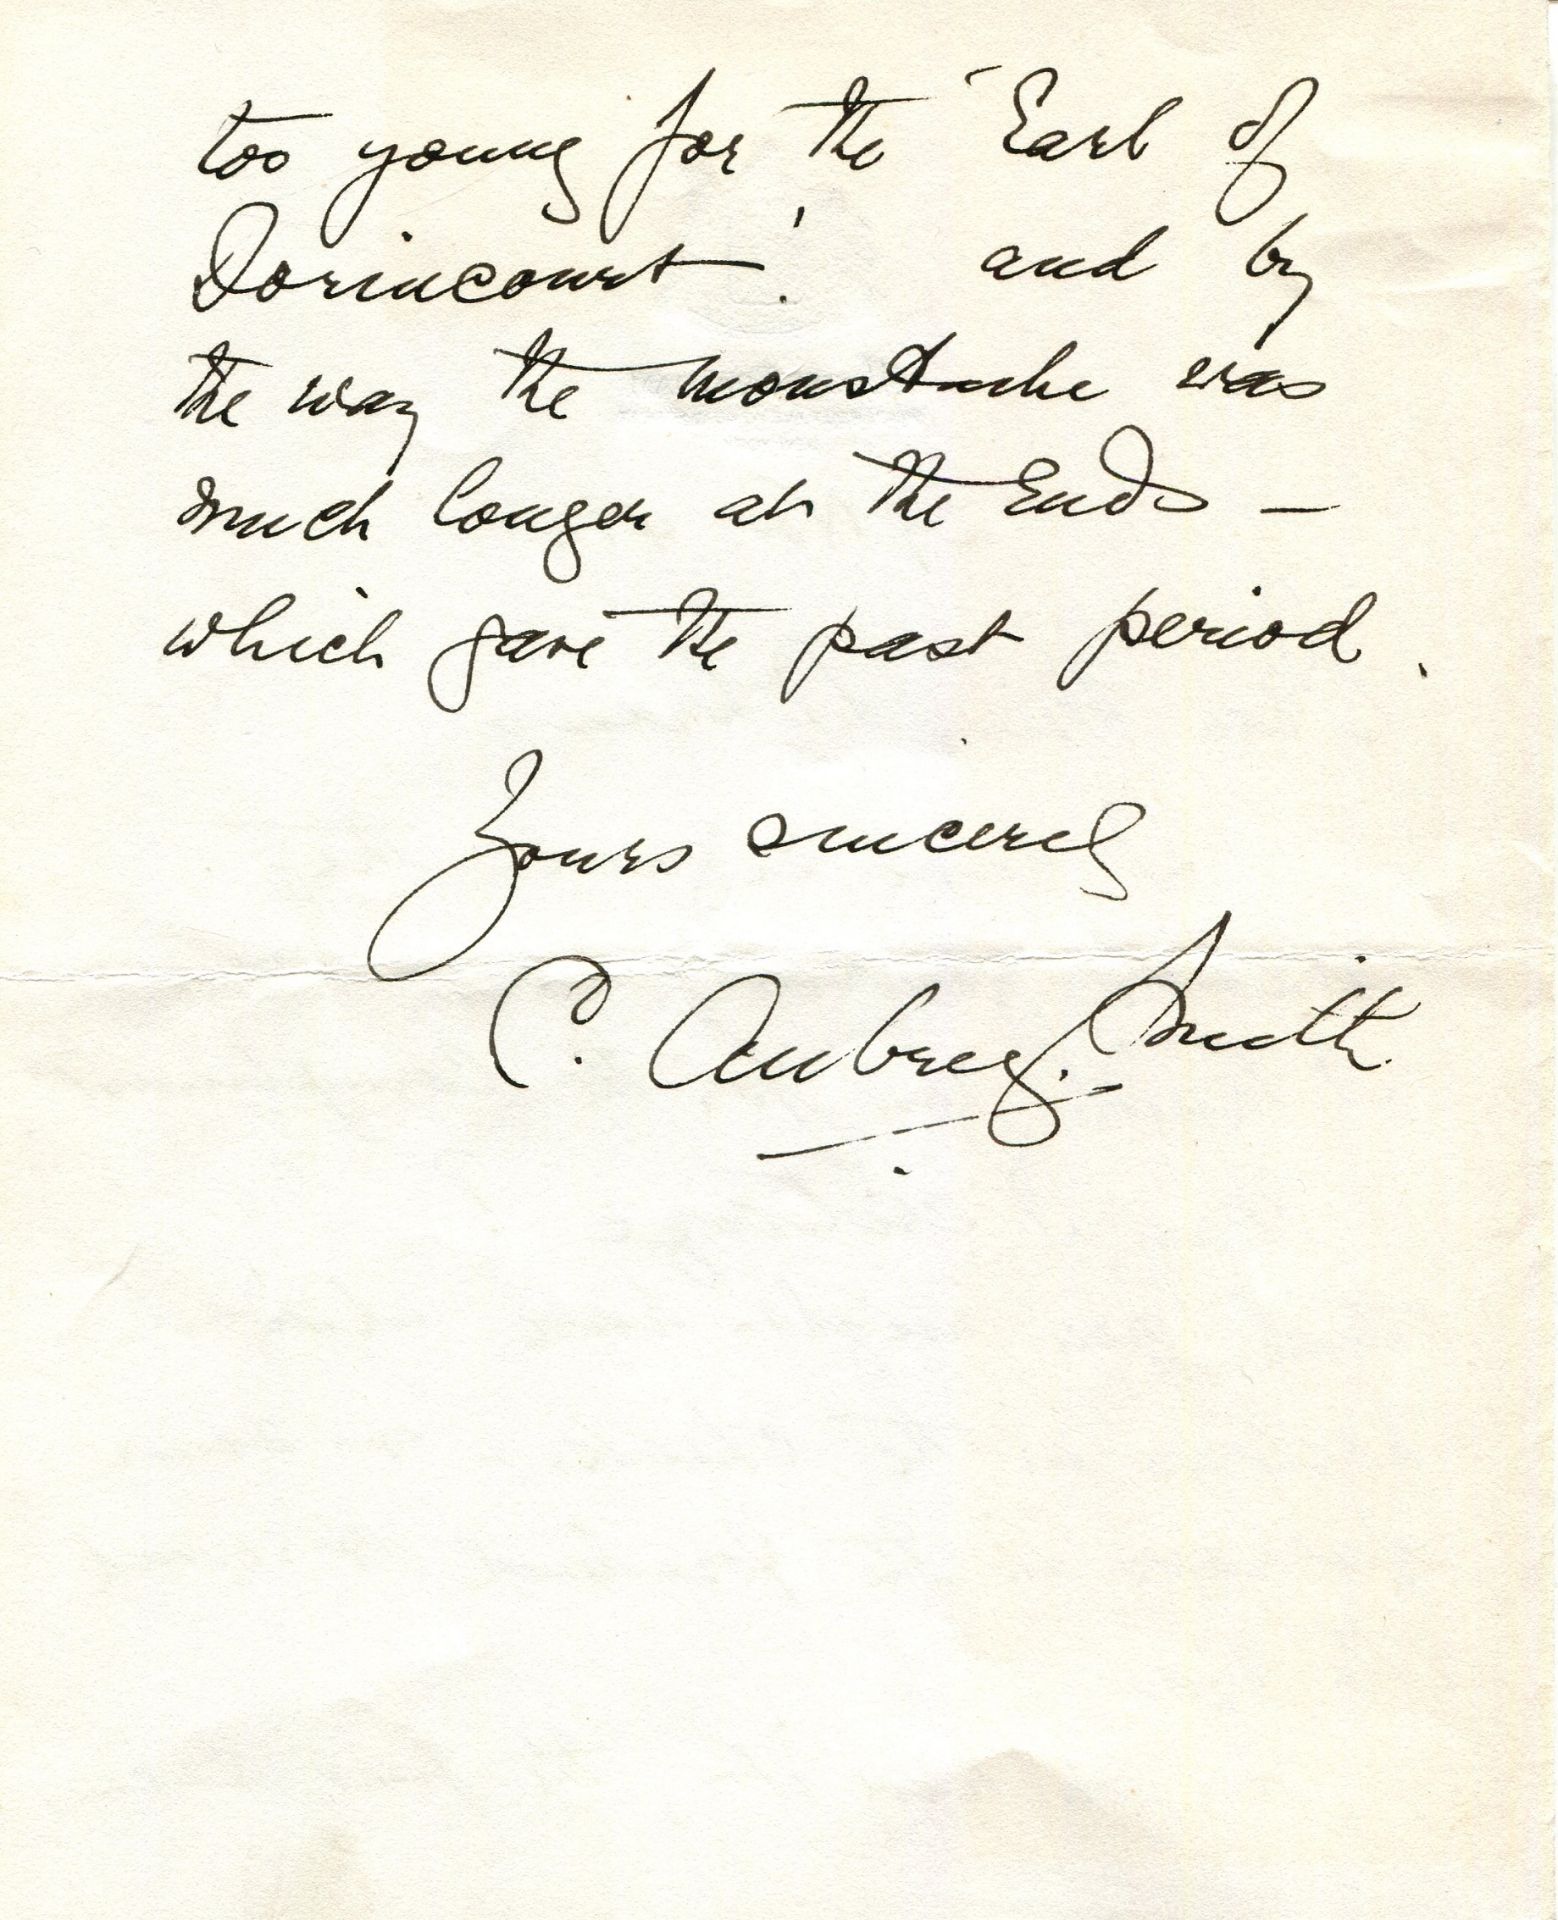 too young for the "Earl of
Dorincourt"! and by
the way the moustache was
much longer at the ends –
which gave the past period.
Yours sincerely
C. Aubrey Smith.